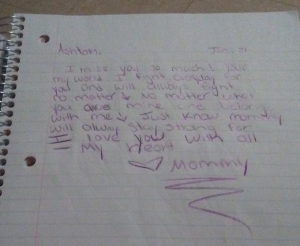 Ashton,
I miss you so much! Your
my world I fight everyday for
you and will always fight
no matter no matter what
your mine and
with me Just know mommy
will always stay strong for
I love you with all
My heart
Mommy